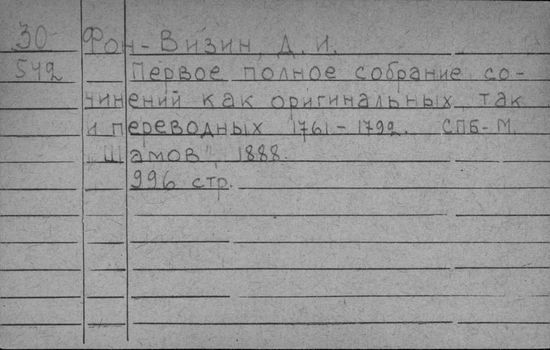 30 Фон-Визин, Д. И.
542 Первое полное собрание со-
чинений как оригинальных, так
и переводных 1761-1792. СПБ-М,
"Шамов", 1888.
996 стр.